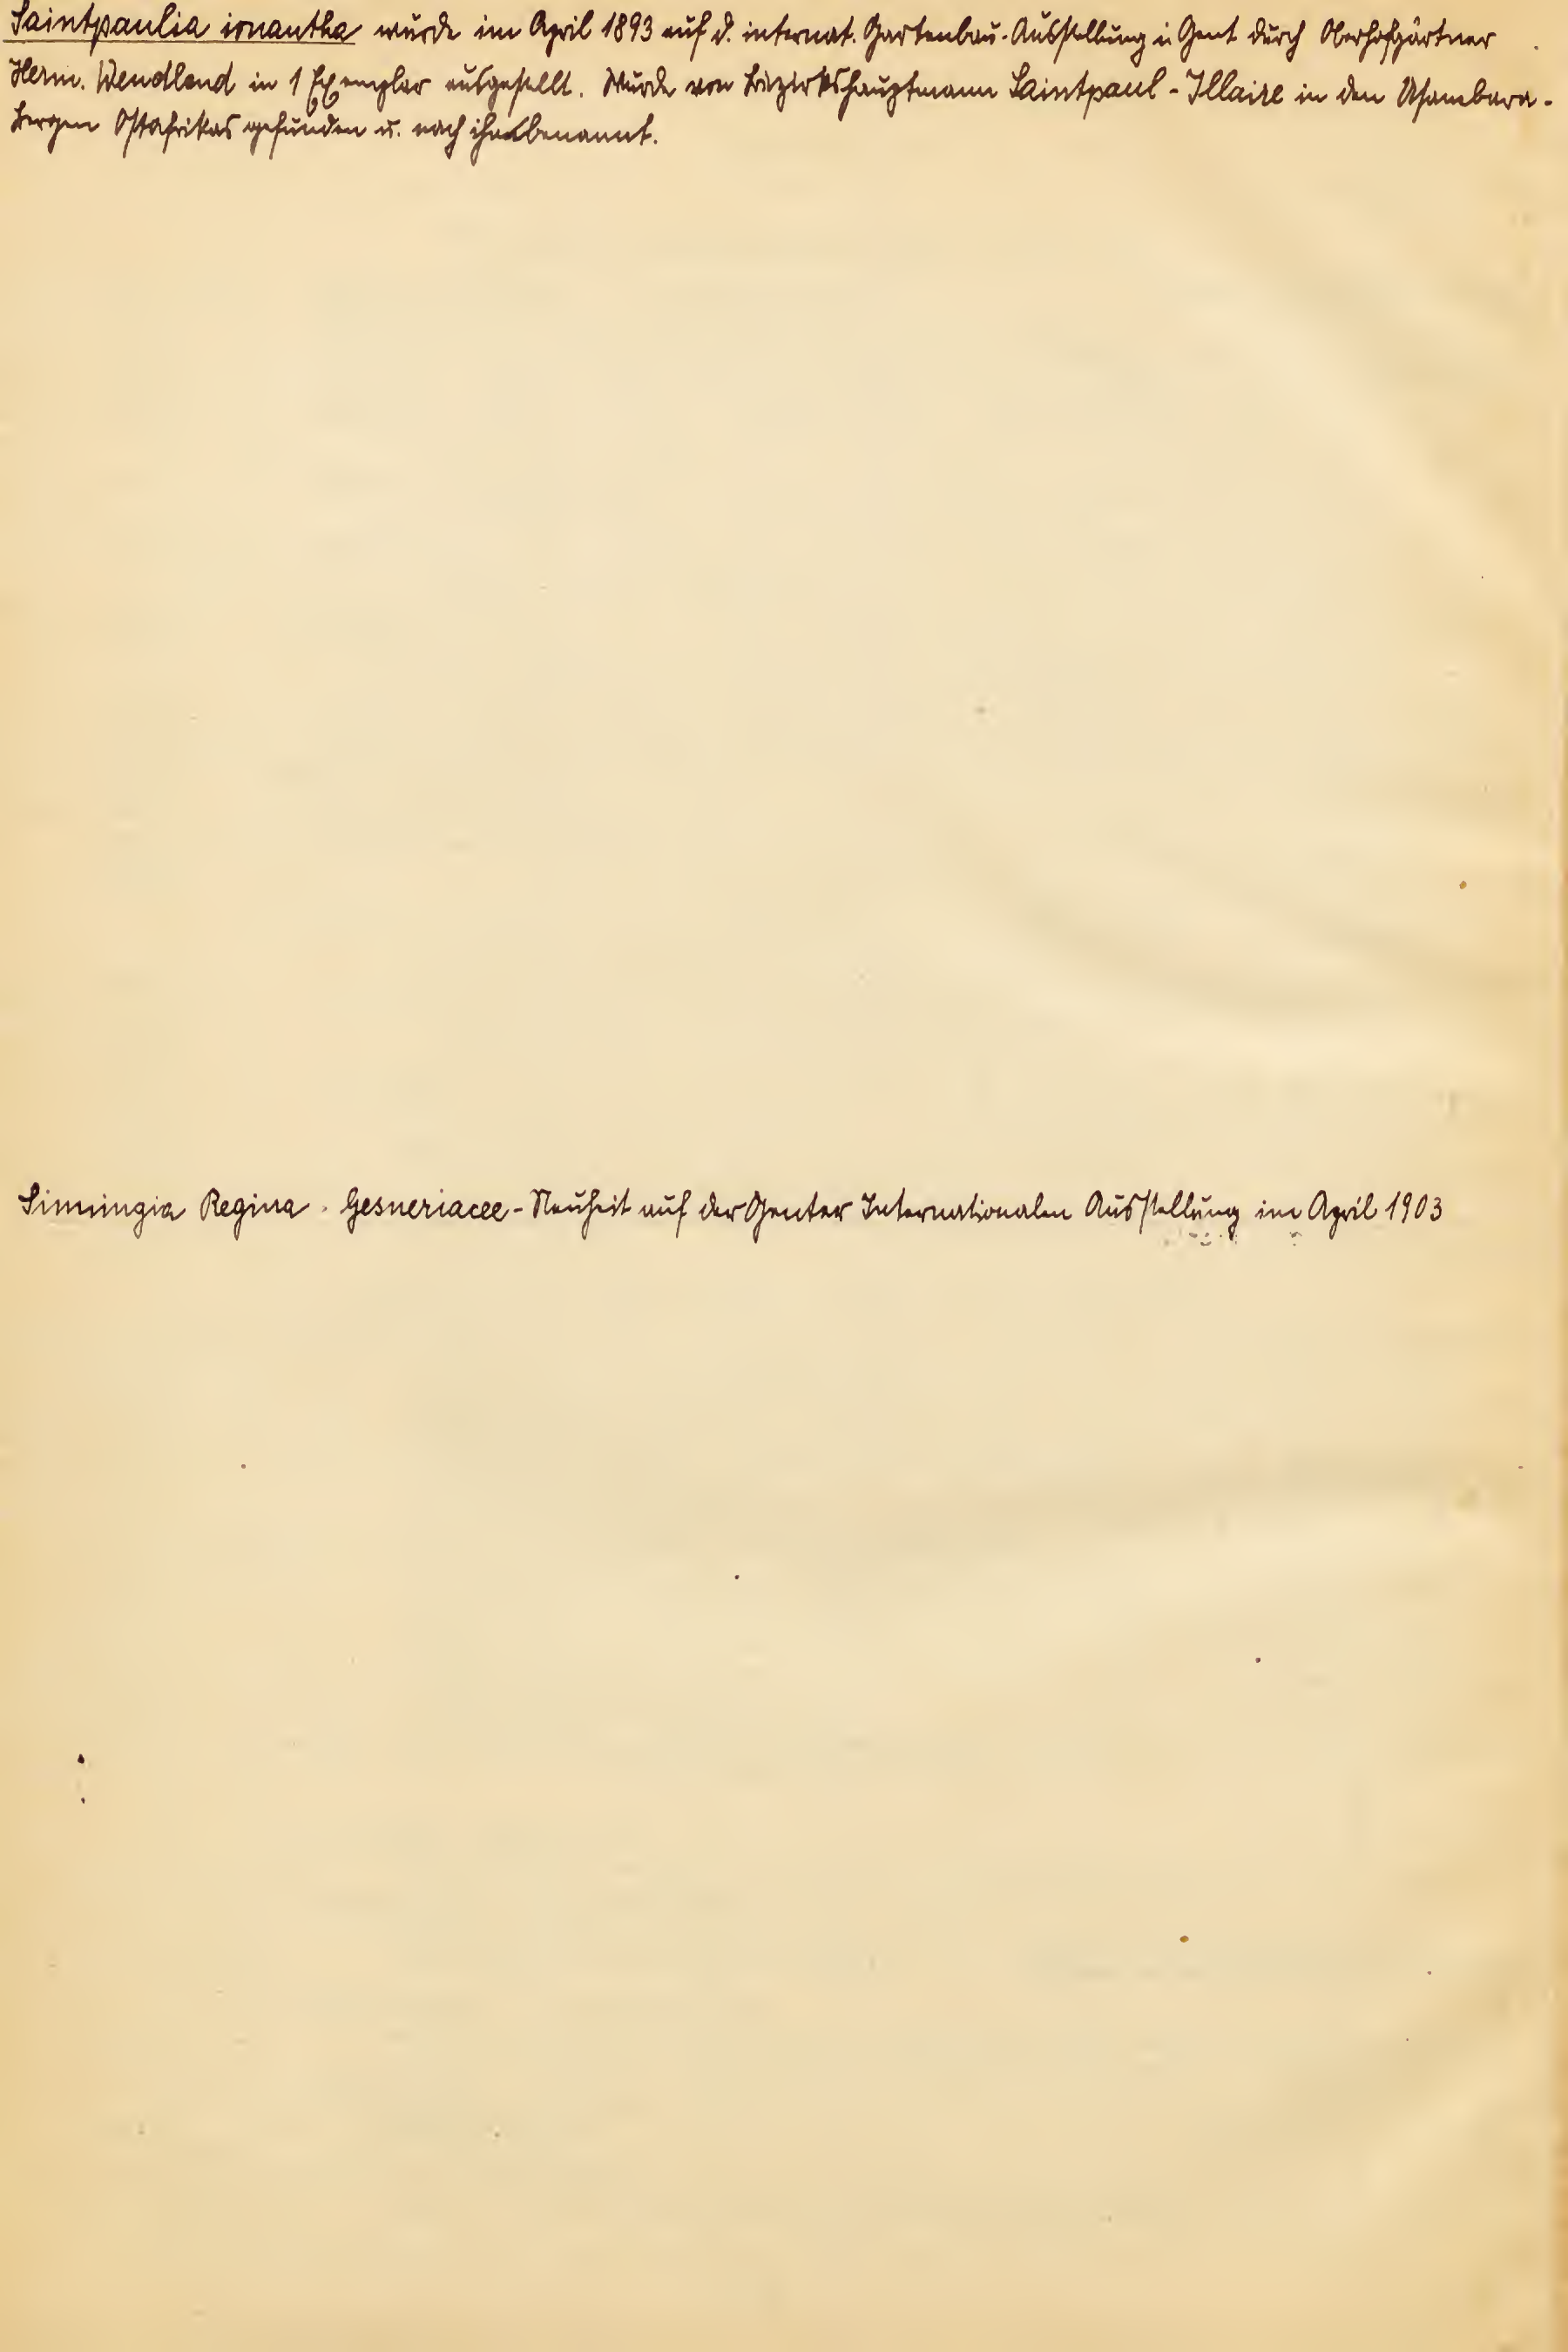 Saintpaulia ionantha wurde im April 1893 auf d. internat. Gartenbau-Ausstellung i. Gent durch Oberhofgärtner
Herm. Wendland in 1 Exemplar ausgestellt. Wurde von Bezirkshauptmann Saintpaul-Illaire in den Usambara-
bergen Ostafrikas gefunden u. nach ihm benannt.
Sinningia Regina. Gesneriacee-Neuheit auf der Genter Internationalen Ausstellung im April 1903